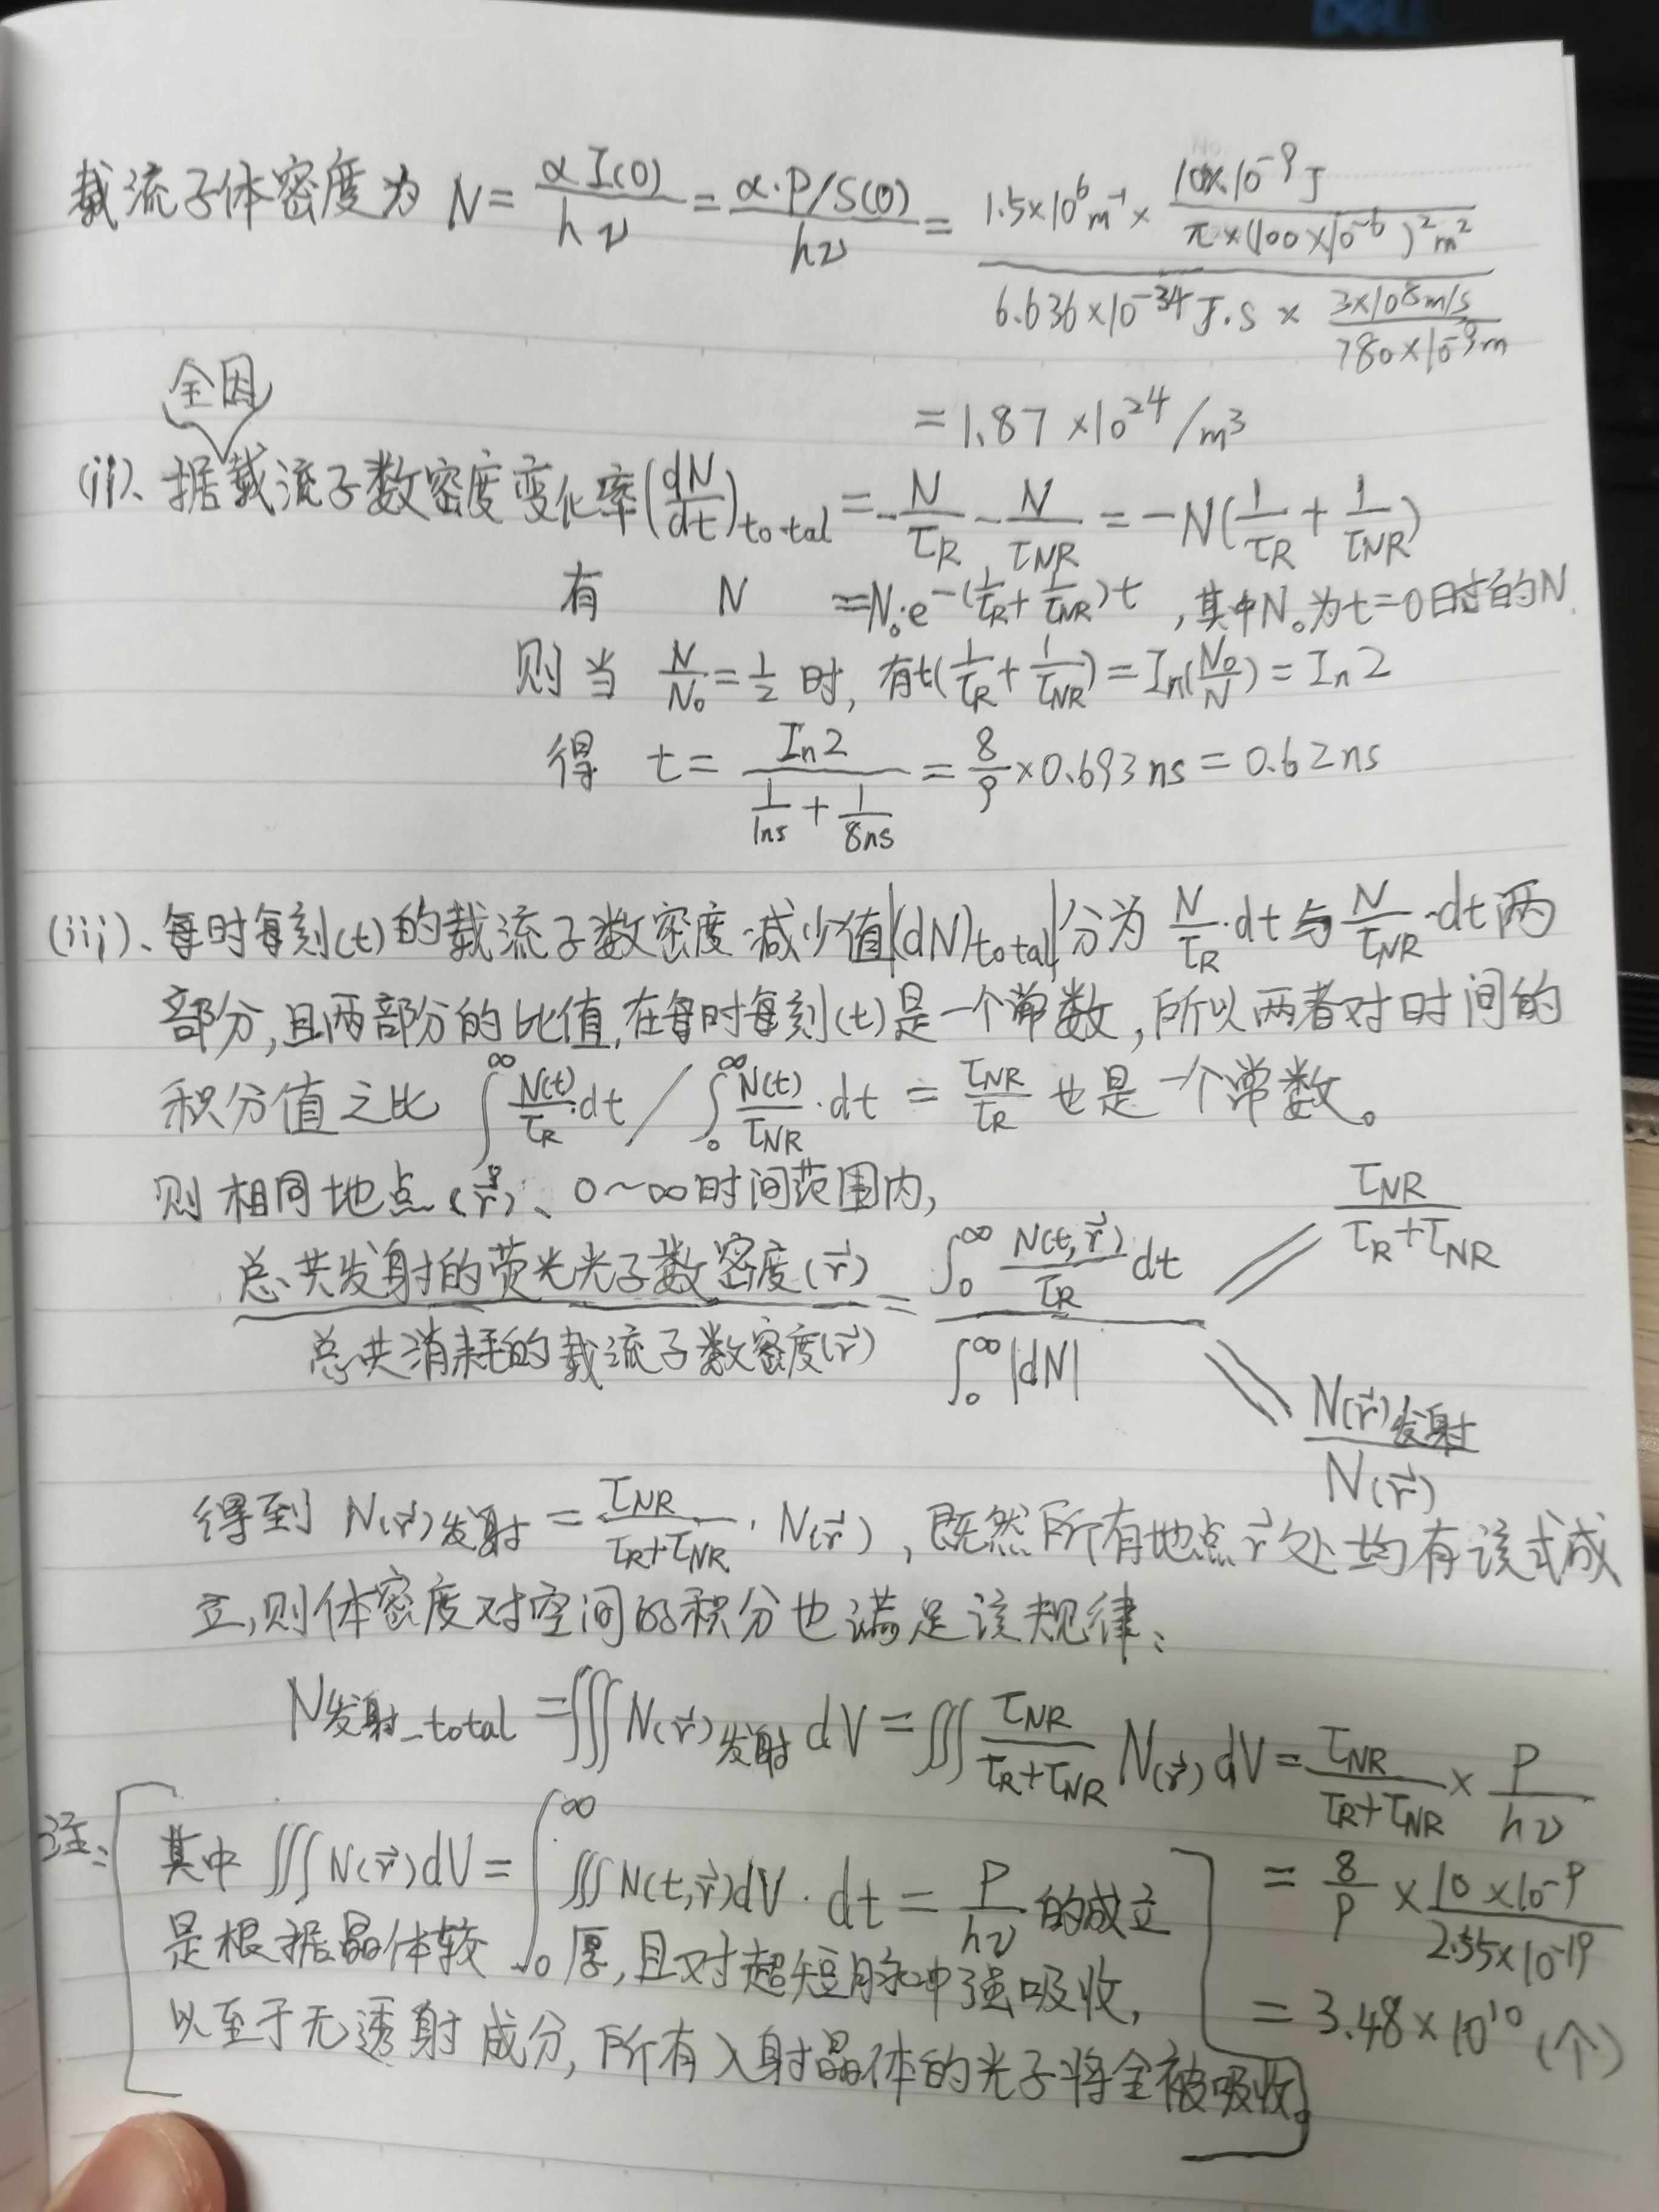 载流子体密度为 N = αI(0)/hν = α·P/S(0)/hν = 1.5×10⁶m⁻¹ × 10×10⁻⁹J/π×(100×10⁻⁶)²m² / 6.636×10⁻³⁴J·s × 3×10⁸m/s/780×10⁻⁹m
= 1.87×10²⁴/m³
全因
(ii)、据载流子数密度变化率(dN/dt)total = -N/τR - N/τNR = -N(1/τR + 1/τNR)
有 N = N₀·e^-(1/τR + 1/τNR)t ,其中N₀为t=0时的N.
则当 N/N₀ = 1/2 时, 有t(1/τR + 1/τNR) = In(N₀/N) = In2
得 t = In2/(1/1ns + 1/8ns) = 8/9 × 0.693ns = 0.62ns
(iii)、每时每刻(t)的载流子数密度减少值|(dN)total|分为 N/τR·dt与N/τNR·dt两
部分,且两部分的比值,在每时每刻(t)是一个常数,所以两者对时间的
积分值之比 ∫₀^∞ N(t)/τR·dt / ∫₀^∞ N(t)/τNR·dt = τNR/τR 也是一个常数。
则相同地点(r⃗)、0~∞时间范围内,
总共发射的荧光光子数密度(r⃗)/总共消耗的载流子数密度(r⃗) = ∫₀^∞ N(t,r⃗)/τR dt / ∫₀^∞ |dN|
= τNR/τR+τNR
= N(r⃗)发射/N(r⃗)
得到 N(r⃗)发射 = τNR/τR+τNR · N(r⃗) ,既然所有地点r⃗处均有该式成
立,则体密度对空间的积分也满足该规律:
N发射_total = ∭N(r⃗)发射 dV = ∭ τNR/τR+τNR N(r⃗) dV = τNR/τR+τNR × P/hν
= 8/9 × 10×10⁻⁹/2.55×10⁻¹⁹
= 3.48×10¹⁰ (个)
注: 其中 ∭N(r⃗)dV = ∫₀^∞ ∭N(t,r⃗)dV·dt = P/hν 的成立
是根据晶体较厚,且对超短脉冲强吸收,
以至于无透射成分,所有入射晶体的光子将全被吸收。